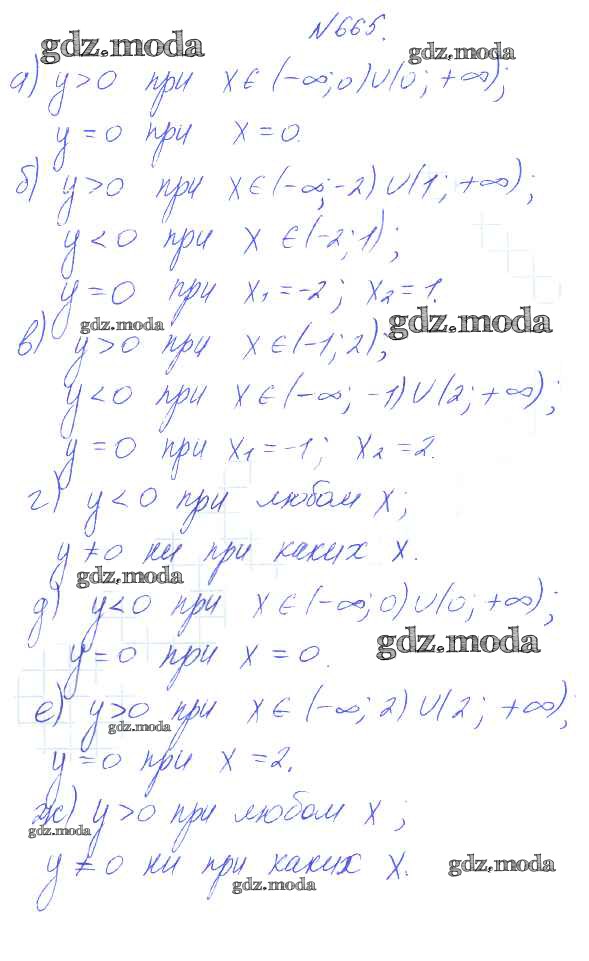 №665.
gdz.moda
gdz.moda
а) y>0 при x∈(-∞;0)∪(0;+∞);
y=0 при x=0.
б) y>0 при x∈(-∞;-2)∪(1;+∞);
y<0 при x∈(-2;1);
y=0 при x₁=-2; x₂=1.
gdz.moda
gdz.moda
в) y>0 при x∈(-1;2);
y<0 при x∈(-∞;-1)∪(2;+∞);
y=0 при x₁=-1; x₂=2.
г) y<0 при любом x;
y≠0 ни при каких x.
gdz.moda
д) y<0 при x∈(-∞;0)∪(0;+∞);
gdz.moda
y=0 при x=0.
е) y>0 при x∈(-∞;2)∪(2;+∞);
gdz.moda
y=0 при x=2.
ж) y>0 при любом x;
gdz.moda
y≠0 ни при каких x.
gdz.moda
gdz.moda